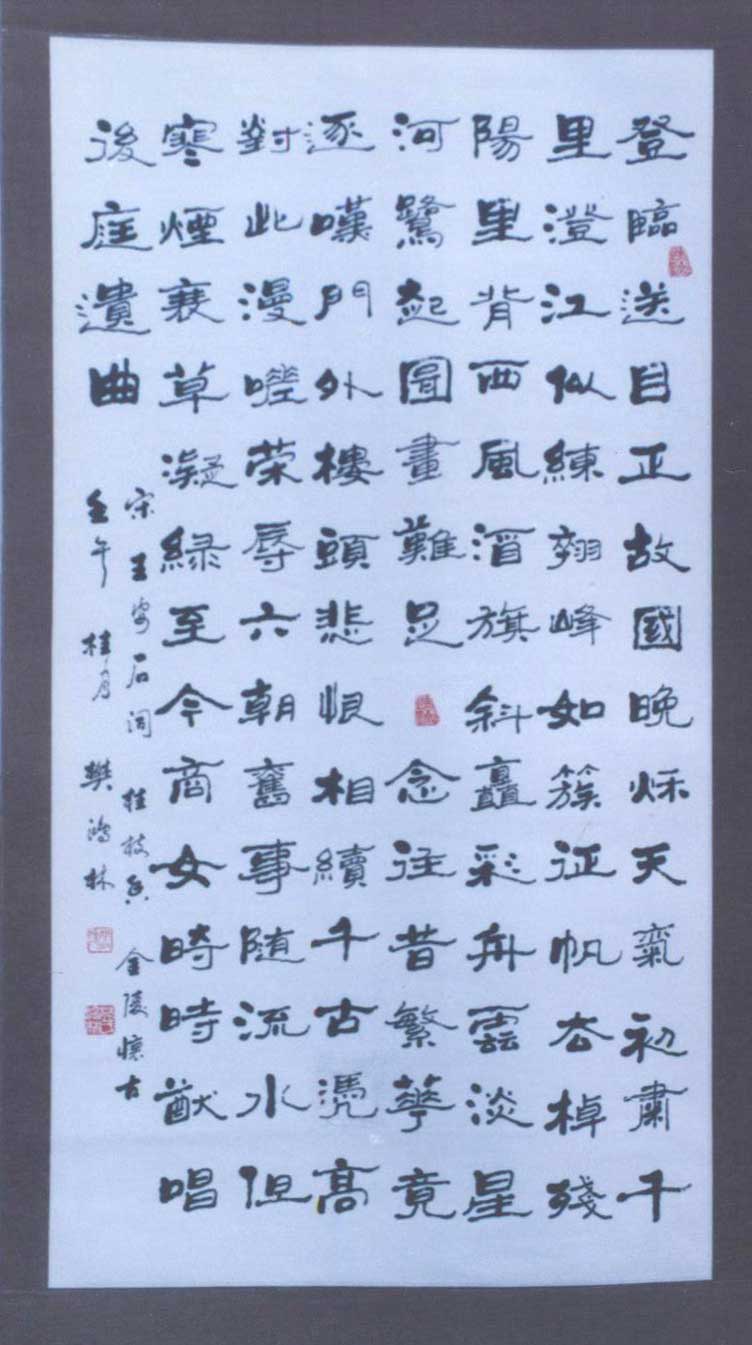 登臨送目正故國晚秌天氣初肅千
里澄江似練翠峰如簇征帆去棹殘
陽里背西風酒旗斜矗彩舟雲淡星
河鷺起圖畫難足念往昔繁華竟
逐嘆門外樓頭悲恨相續千古憑高
對此漫嗟榮辱六朝舊事随流水但
寒煙衰草凝緑至今商女時時猷唱
後庭遺曲
宋王安石詞桂枝香金陵懷古
壬午桂月樊鴻林